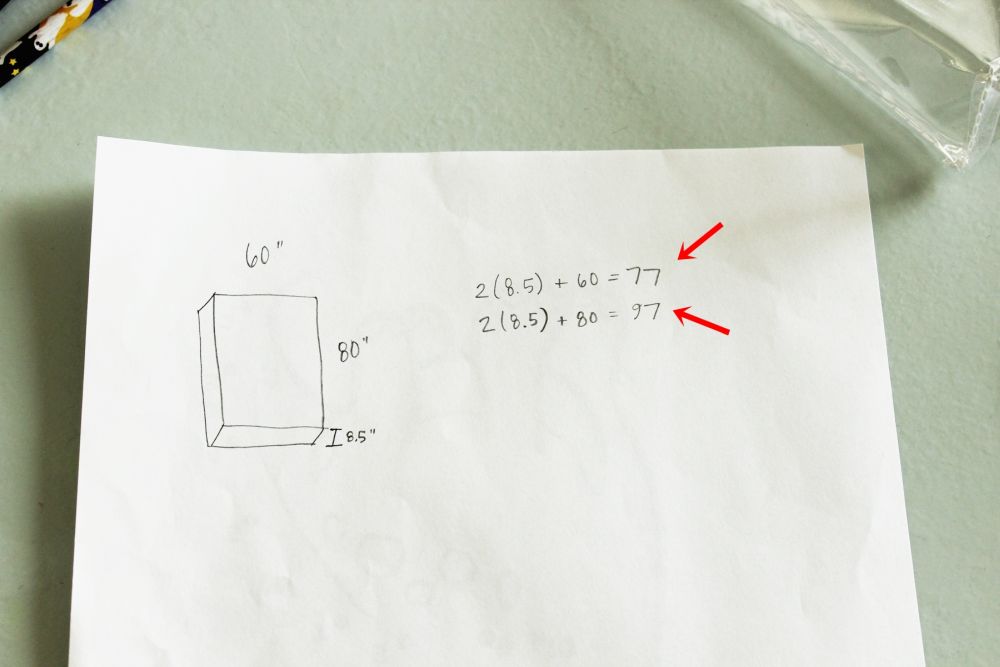 60"
80"
8.5"
2(8.5) + 60 = 77
2(8.5) + 80 = 97